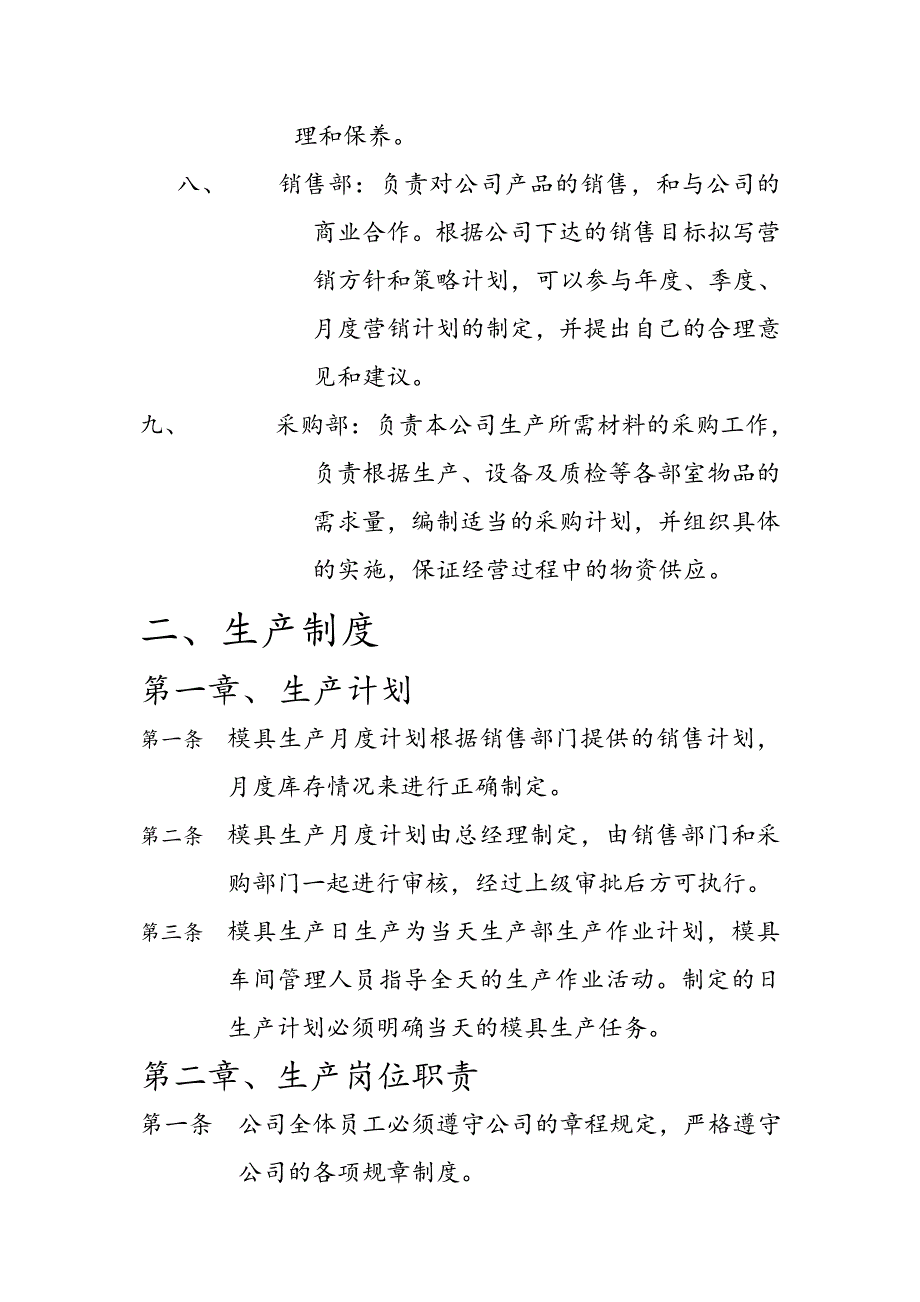 理和保养。
八、 销售部：负责对公司产品的销售，和与公司的
商业合作。根据公司下达的销售目标拟写营
销方针和策略计划，可以参与年度、季度、
月度营销计划的制定，并提出自己的合理意
见和建议。
九、 采购部：负责本公司生产所需材料的采购工作，
负责根据生产、设备及质检等各部室物品的
需求量，编制适当的采购计划，并组织具体
的实施，保证经营过程中的物资供应。
二、生产制度
第一章、生产计划
第一条 模具生产月度计划根据销售部门提供的销售计划，
月度库存情况来进行正确制定。
第二条 模具生产月度计划由总经理制定，由销售部门和采
购部门一起进行审核，经过上级审批后方可执行。
第三条 模具生产日生产为当天生产部生产作业计划，模具
车间管理人员指导全天的生产作业活动。制定的日
生产计划必须明确当天的模具生产任务。
第二章、生产岗位职责
第一条 公司全体员工必须遵守公司的章程规定，严格遵守
公司的各项规章制度。